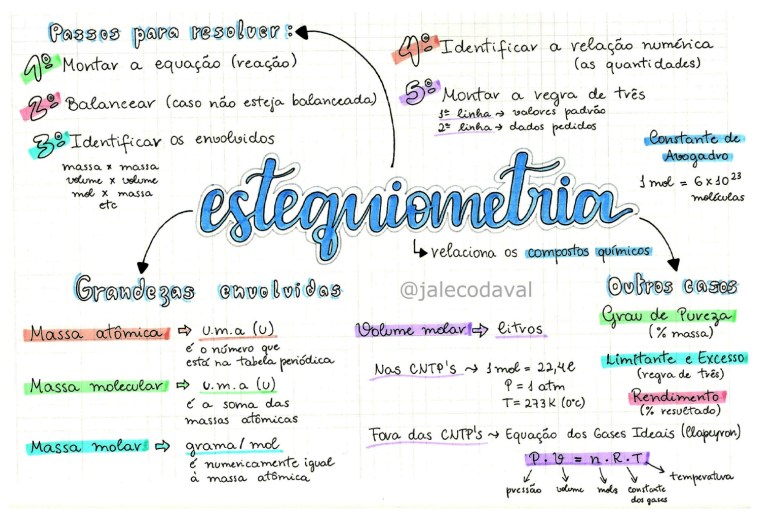 Passos para resolver:
1º Montar a equação (reação)
2º Balancear (caso não esteja balanceada)
3º Identificar os envolvidos
massa x massa
volume x volume
mol x massa
etc
4º Identificar a relação numérica
(as quantidades)
5º Montar a regra de três
1ª linha → valores padrão
2ª linha → dados pedidos
Constante de
Avogadro
1 mol = 6 x 10²³
moléculas
estequiometria
↳ relaciona os compostos químicos
Grandezas envolvidas
@jalecodaval
Massa atômica ⇨ u.m.a (u)
é o número que
está na tabela periódica
Massa molecular ⇨ u.m.a (u)
é a soma das
massas atômicas
Massa molar ⇨ grama/mol
é numericamente igual
à massa atômica
Volume molar ⇨ litros
Nas CNTP's → 1 mol = 22,4l
P = 1 atm
T = 273K (0°c)
Fora das CNTP's → Equação dos Gases Ideais (Clapeyron)
P . V = n . R . T
pressão volume mols constante dos gases temperatura
Outros casos
Grau de Pureza
(% massa)
Limitante e Excesso
(regra de três)
Rendimento
(% resultado)